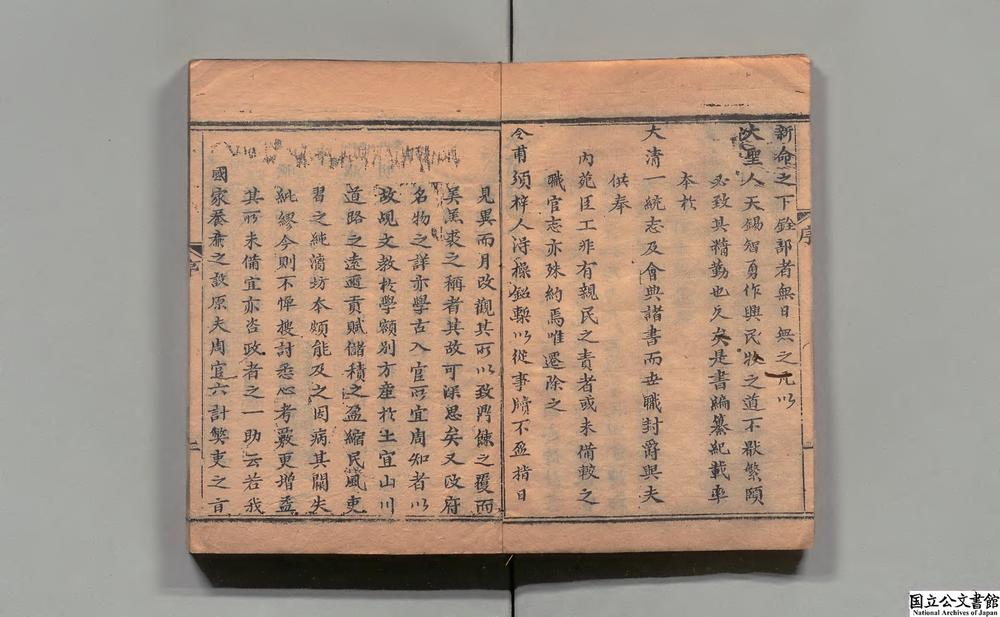 新命之下銓部者無日無之凡以
大聖人天錫智勇作興民牧之道不厭繁頤
必致其精勤也久矣是書編纂紀載率
本於
大清一統志及會典諸書而世職封爵與夫
供奉
內苑臣工非有親民之責者或未備較之
職官志亦殊約焉唯遷除之
令甫頒梓人淂操鉛槧以從事牘不盈指日
序
見異而月改觀其所以致鬴餗之覆而
羙羔裘之稱者其故可深思矣又政府
名物之詳亦學古入官所宜周知者以
故覘文教於學額別方産於土宜山川
道路之遠邇貢賦儲積之盈縮民風吏
習之純漓坊本頗能及之因病其闕失
紕繆今則不憚搜討悉心考覈更增益
其所未備宜亦咨政者之一助云若我
國家養亷之設原夫周官六計弊吏之言
序
二
国立公文書館
National Archives of Japan